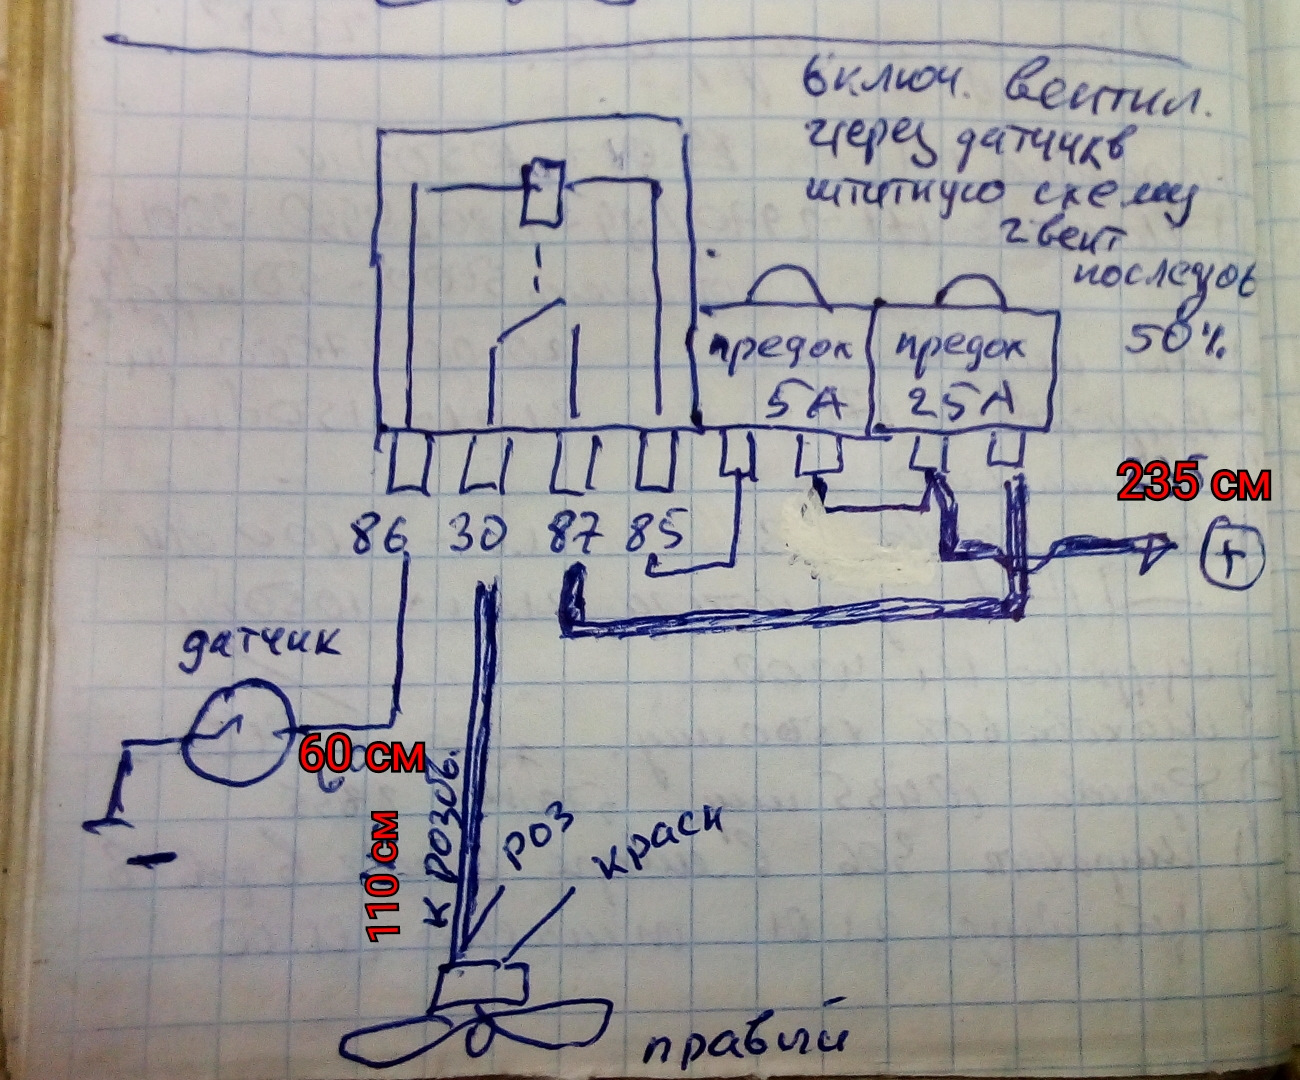 включ. вентил.
через датчик в
штатную схему
2 вент
последов
50%
предох
5А
предох
25А
235 см
+
86 30 87 85
датчик
60 см
110 см
к розов.
роз
красн
правый